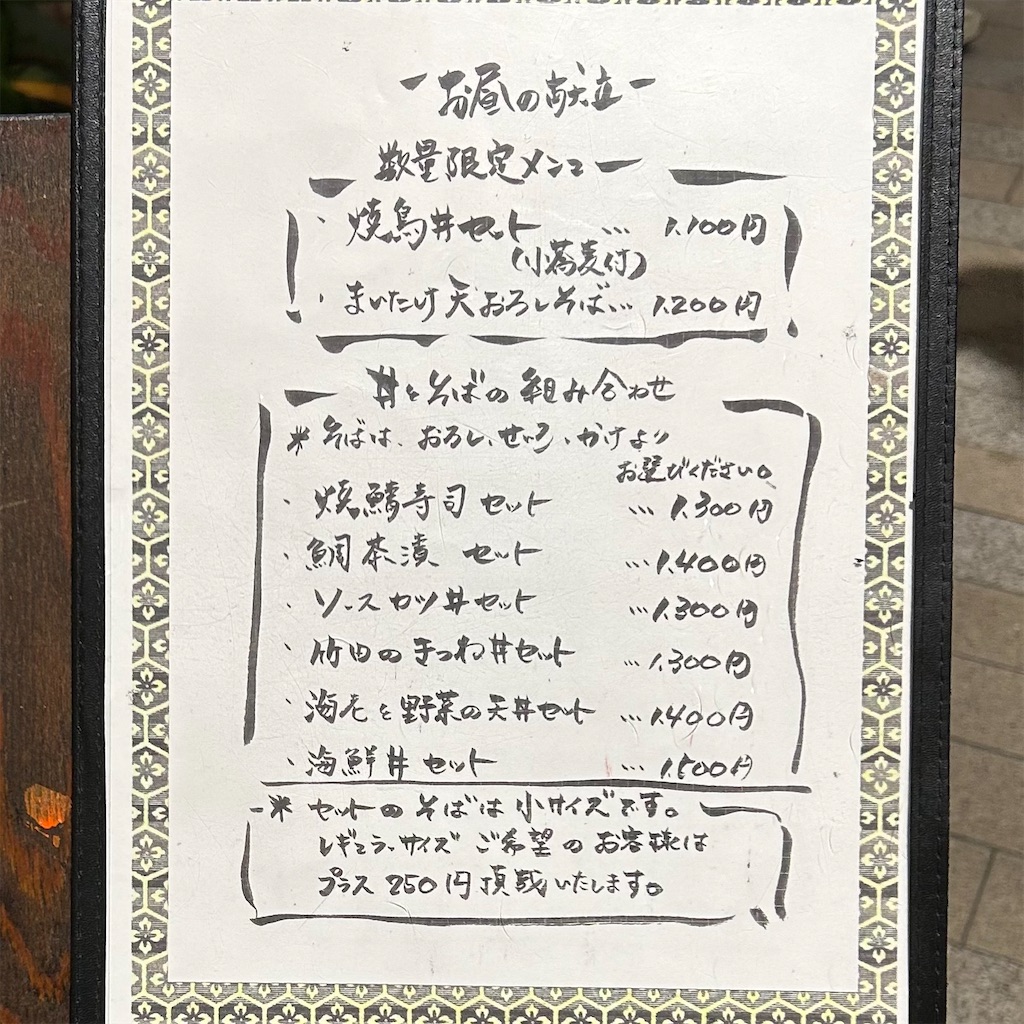 ーお昼の献立ー
数量限定メニュー
・焼鳥丼セット … 1.100円
(小蕎麦付)
・まいたけ天おろしそば… 1.200円
丼とそばの組み合わせ
※そばは、おろし、せいろ、かけより
お選びください。
・焼鯖寿司セット … 1.300円
・鯛茶漬セット … 1.400円
・ソースカツ丼セット … 1.300円
・竹田のきつね丼セット … 1.300円
・海老と野菜の天丼セット … 1.400円
・海鮮丼セット … 1.500円
※セットのそばは小サイズです。
レギュラーサイズご希望のお客様は
プラス250円頂戴いたします。